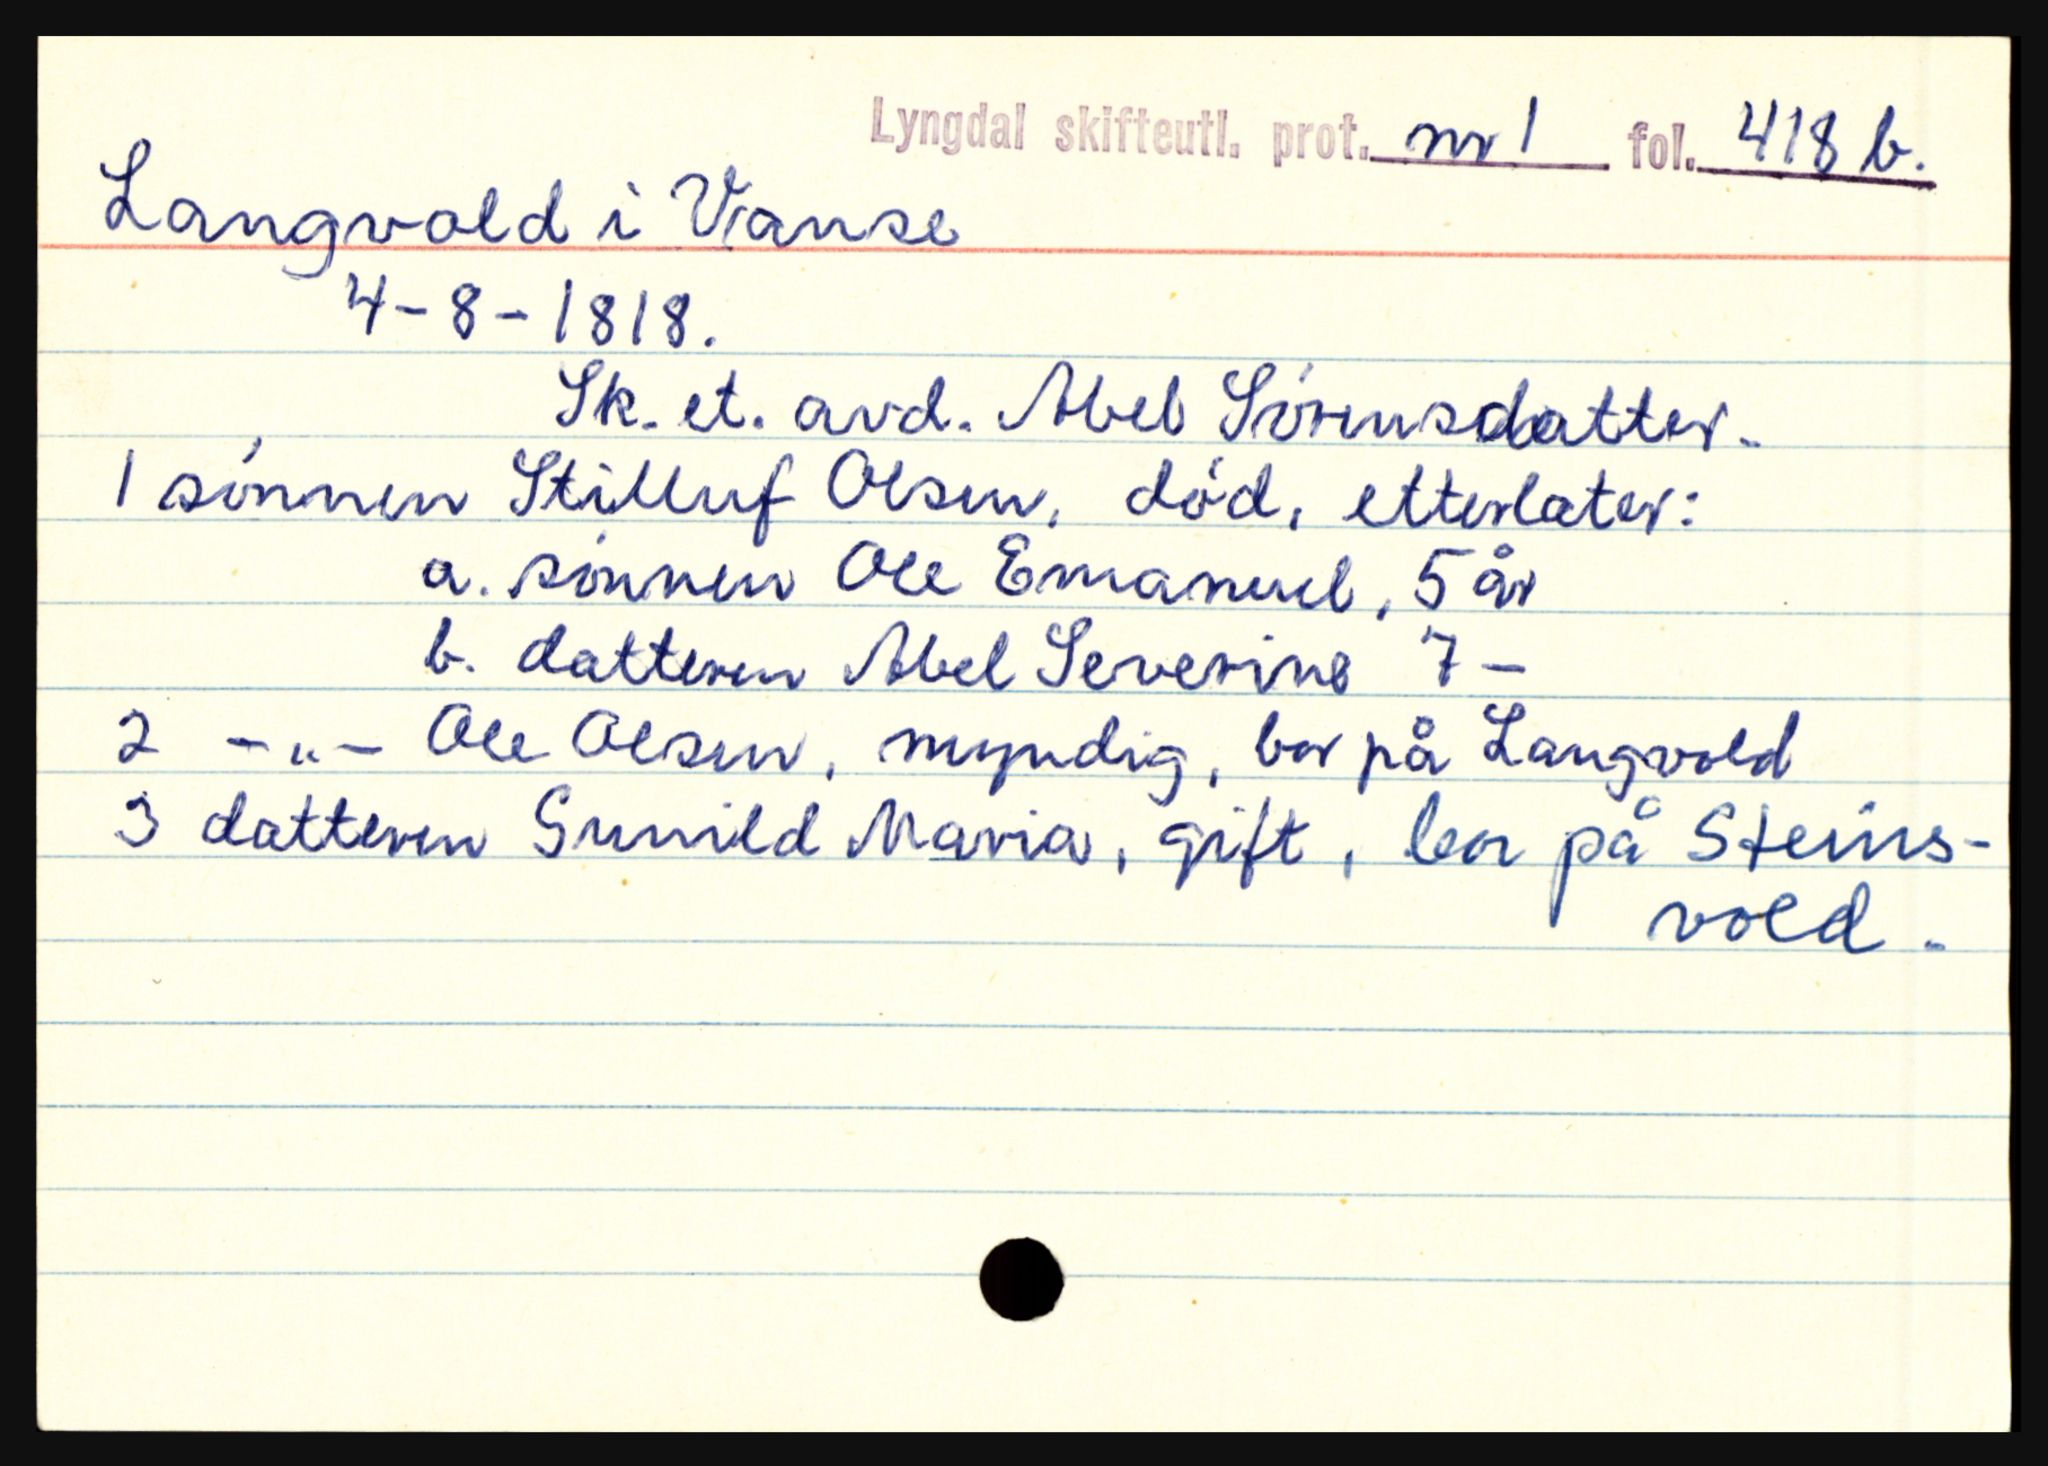 Lyngdal skifteutl. prot. nr 1 fol. 418 b.
Langvold i Vanse
4-8-1818.
Sk. et. avd. Abel Sørensdatter.
1 sønnen Stilluf Olsen, død, etterlater:
a. sønnen Ole Emanuel, 5 år
b. datteren Abel Severine 7 –
2 –„– Ole Olsen, myndig, bor på Langvold
3 datteren Gunild Maria, gift, bor på Steins-
vold.